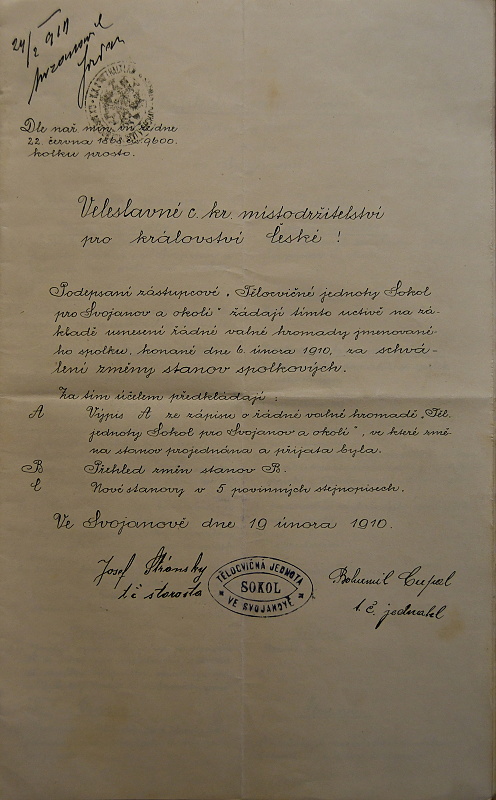 24/2 1910
Dle nař. min. vn. ze dne
22. června 1868 čís. 9600.
kolku prosto.
Veleslavné c. kr. místodržitelství
pro království České!
Podepsaní zástupcové „Tělocvičné jednoty Sokol
pro Svojanov a okolí" žádají tímto uctivě na zá-
kladě usnesení řádné valné hromady jmenované-
ho spolku, konané dne 6. února 1910, za schvá-
lení změny stanov spolkových.
Za tím účelem předkládají:
A Výpis A ze zápisu o řádné valné hromadě „Těl.
jednoty Sokol pro Svojanov a okolí", ve které změ-
na stanov projednána a přijata byla.
B Přehled změn stanov B.
C Nové stanovy v 5 povinných stejnopisech.
Ve Svojanově dne 19 února 1910.
Josef Stránský
t. č. starosta
TĚLOCVIČNÁ JEDNOTA
SOKOL
VE SVOJANOVĚ
Bohumil Cupal
t. č. jednatel